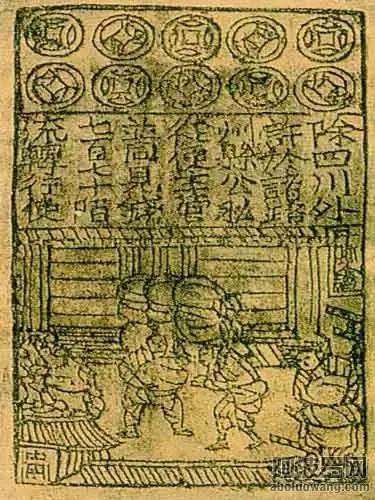 除四川外
許於諸路
州縣公私
從便主管
並同見錢
七百七十陌
流轉行使
阿波罗网
www.aboluowang.com